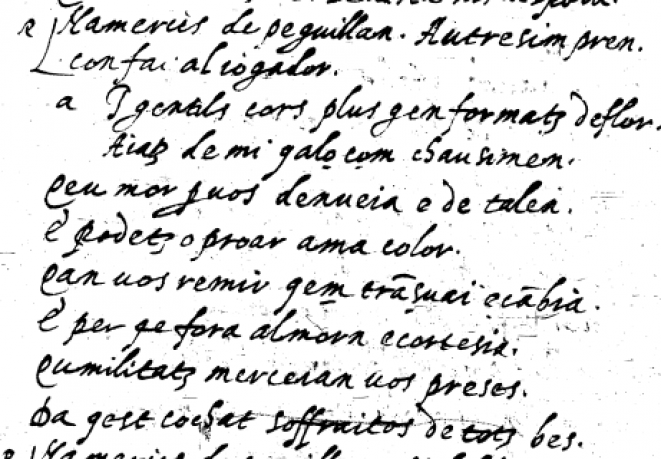 Namerics de peguillan. Autresim pren.
con fai al iogador.
a Igentils cors plus gen formatz deflor.
Aiatz de mi qalqcom chausimen.
Qeu mor p uos denueia e de talen.
E podetz o proar ama color.
Qan uos remir qem trāsuai ecābia.
E per qe fora almorn ecortesia.
Qumilitatz merceian uos preses.
Da qest cochat soffraitos de tots bes.